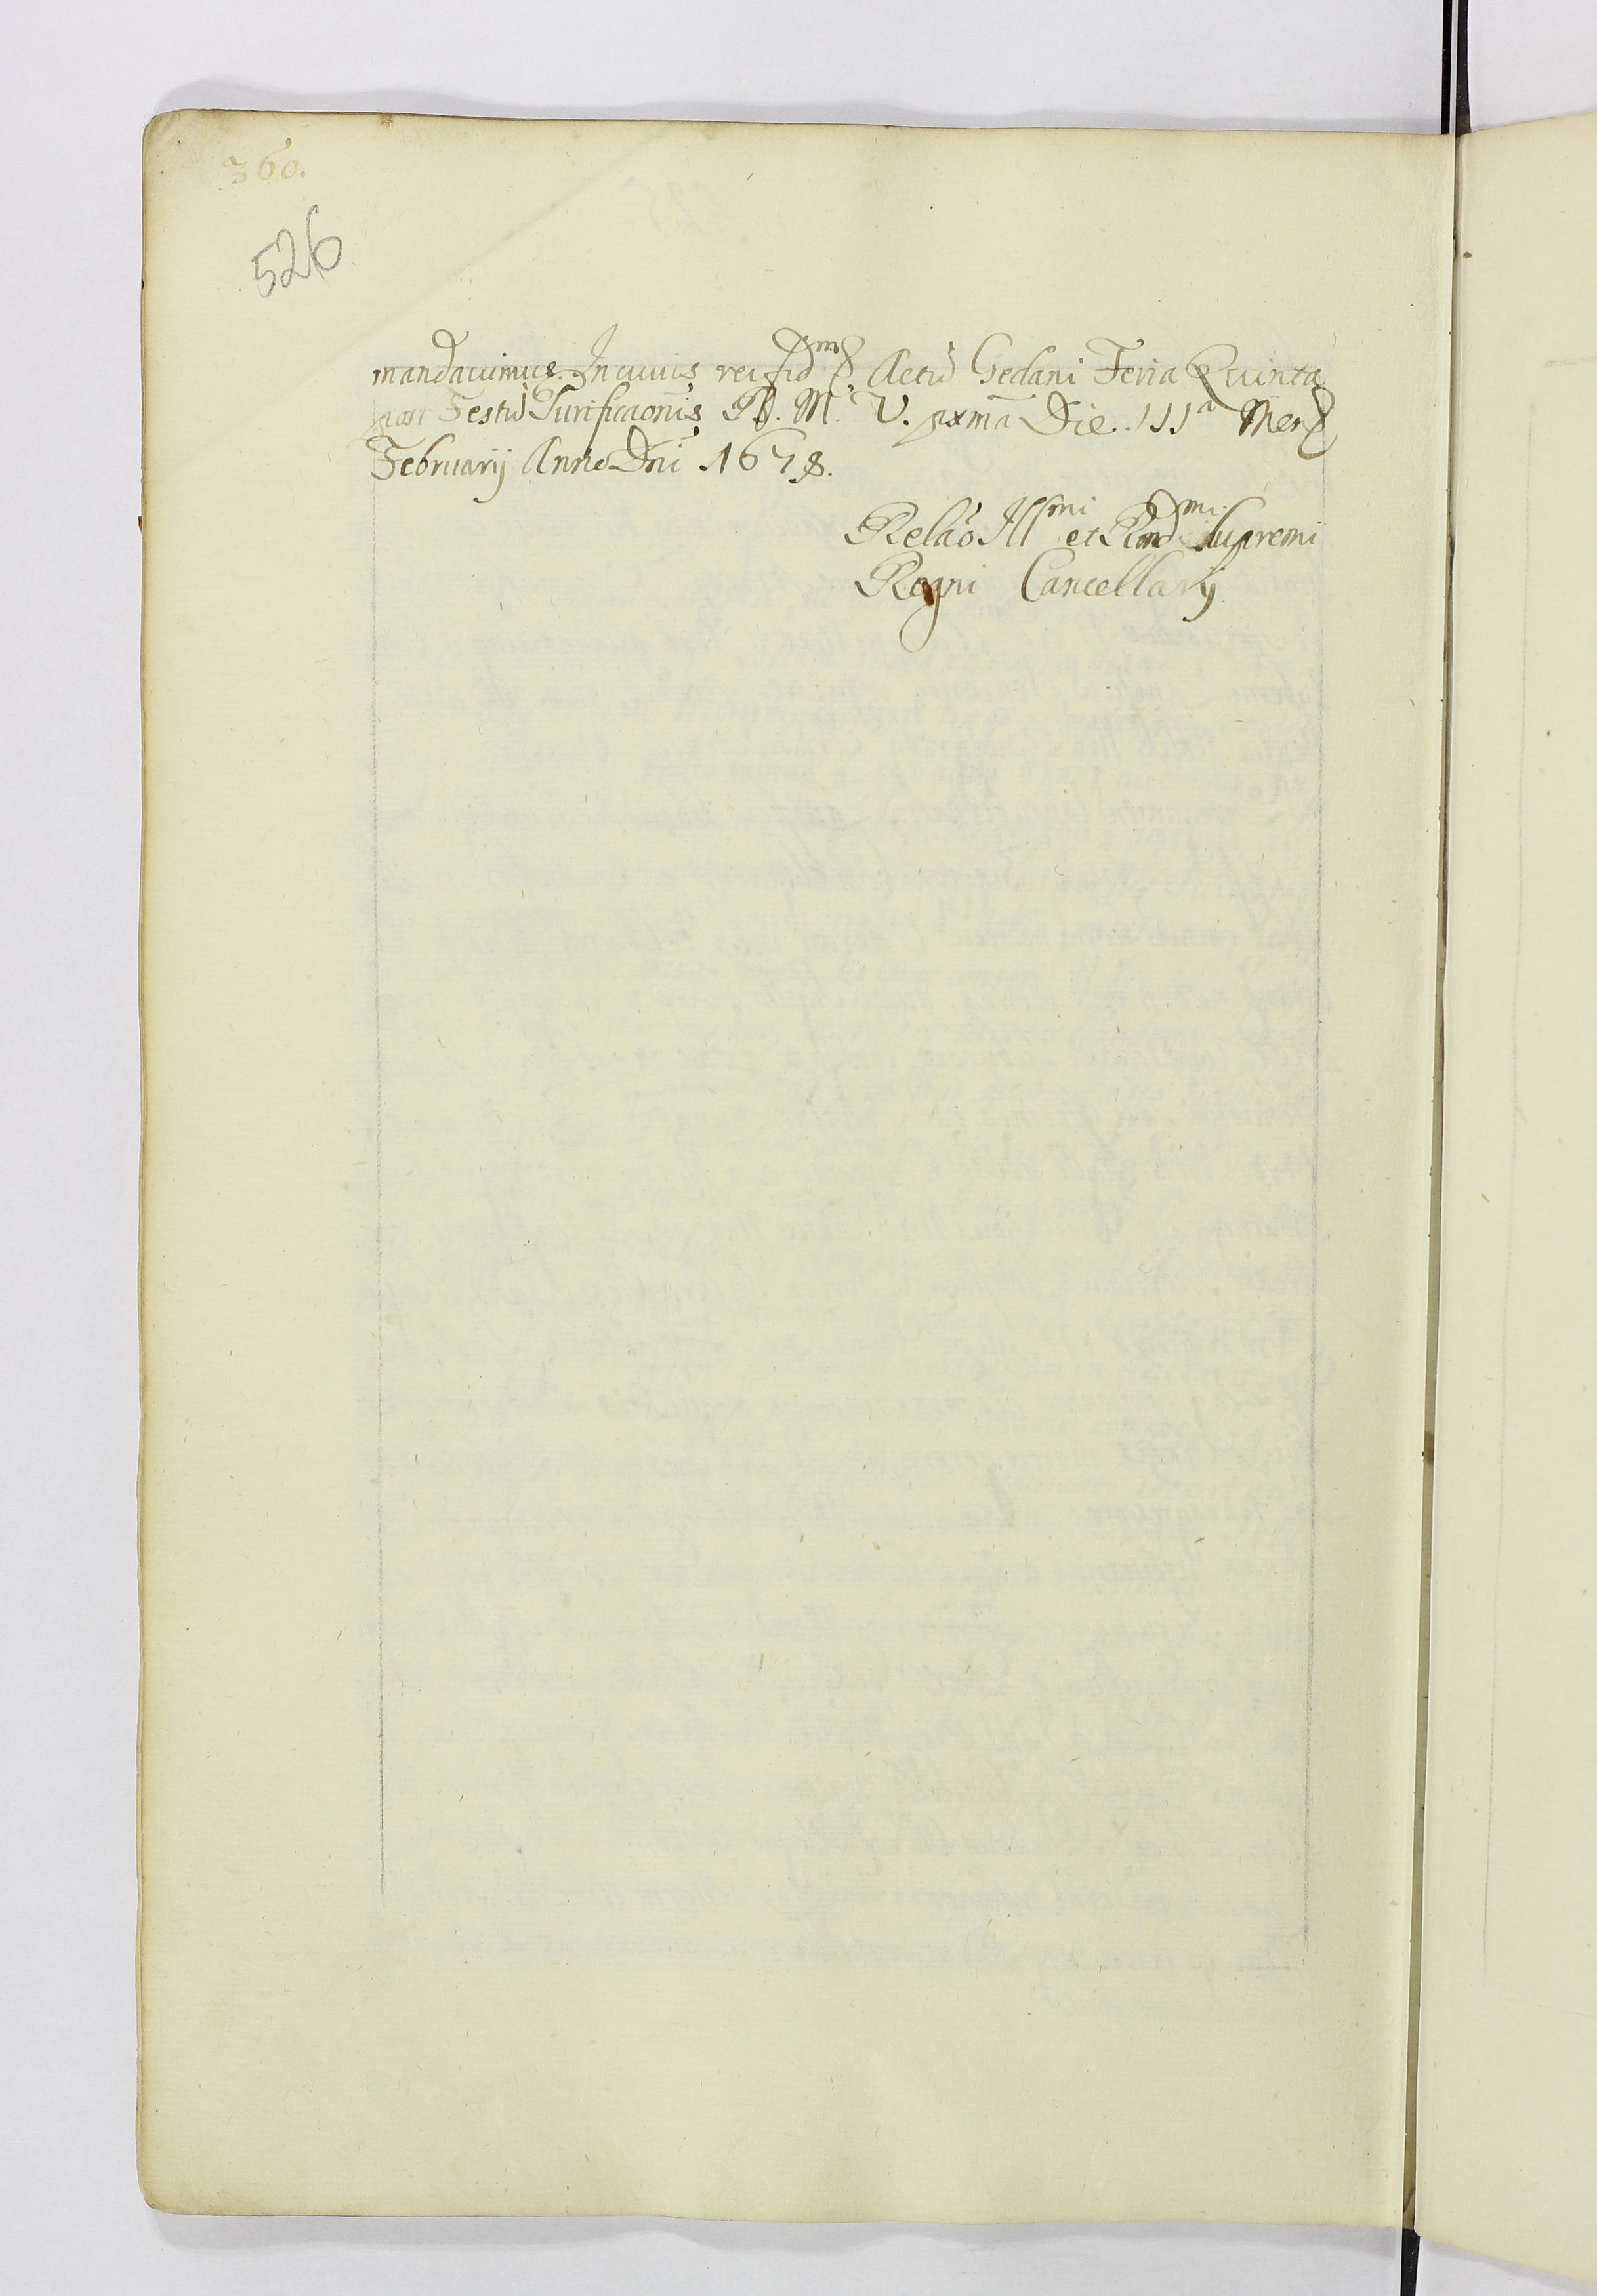 360.
526
mandavimus. In cuius rei fid^m &. Actū Gedani Feria Quinta
post Festū Purificaōnis B. M. V. pxmā Die III^a Mens
Februarij Anno Dni 1678.
Relāo Ill^mi et Rnd^mi Supremi
Regni Cancellarij